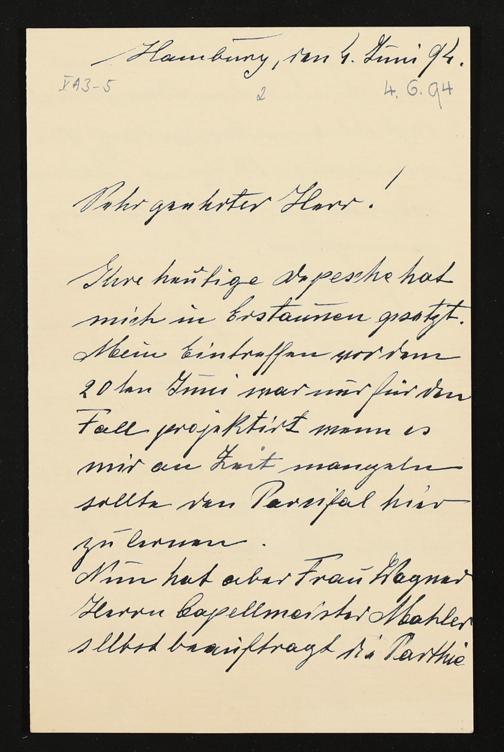 Hamburg, den 4. Juni 94.
XA3-5 2 4. 6. 94
Sehr geehrter Herr!
Ihre heutige Depesche hat
mich in Erstaunen gesetzt.
Mein Eintreffen vor dem
20ten Juni war nur für den
Fall projektirt wenn es
mir an Zeit mangeln
sollte den Parsifal hier
zu lernen.
Nun hat aber Frau Wagner
Herrn Capellmeister Mahler
selbst beauftragt die Parthie